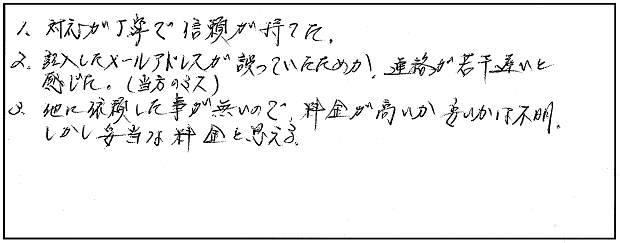 1. 対応が丁寧で信頼が持てた。
2. 記入したメールアドレスが誤っていたためか、連絡が若干遅いと
感じた。(当方のミス)
3. 他に依頼した事が無いので、料金が高いか安いかは不明。
しかし妥当な料金と思える。